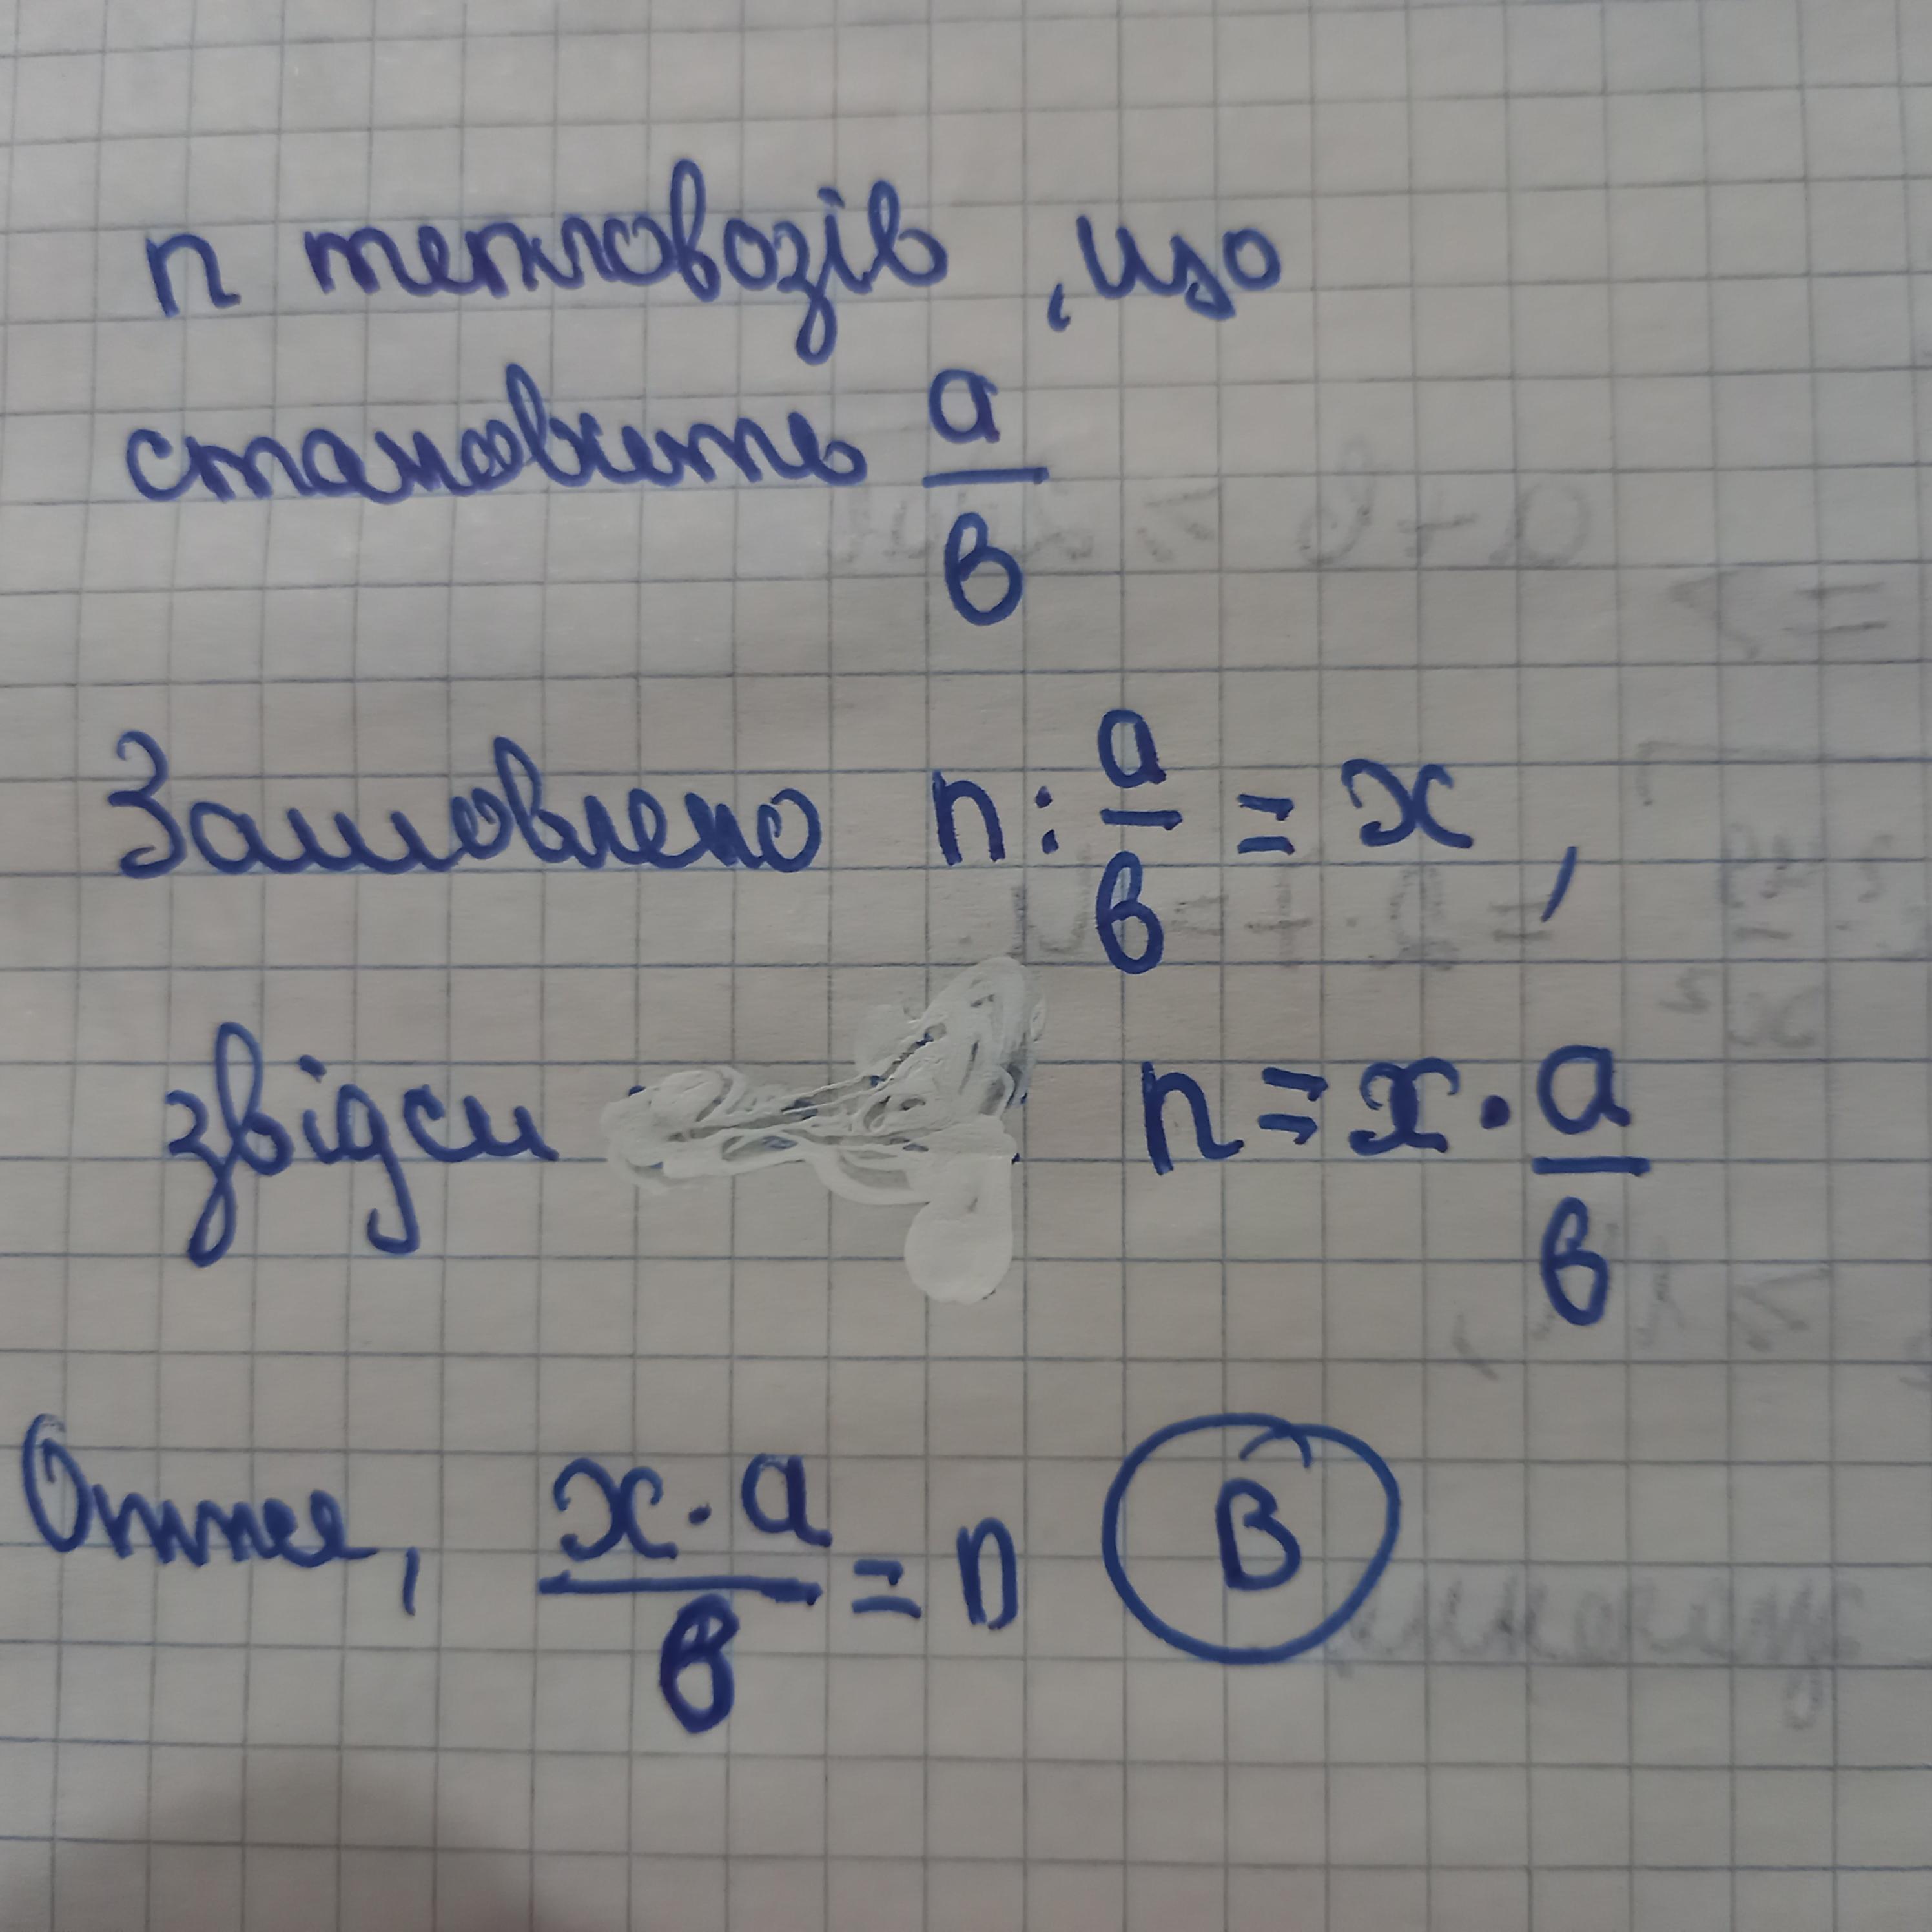 n тепловозів, що
становить a/b
Замовлено n : a/b = x,
звідси n = x · a/b
Отже, x · a/b = n B